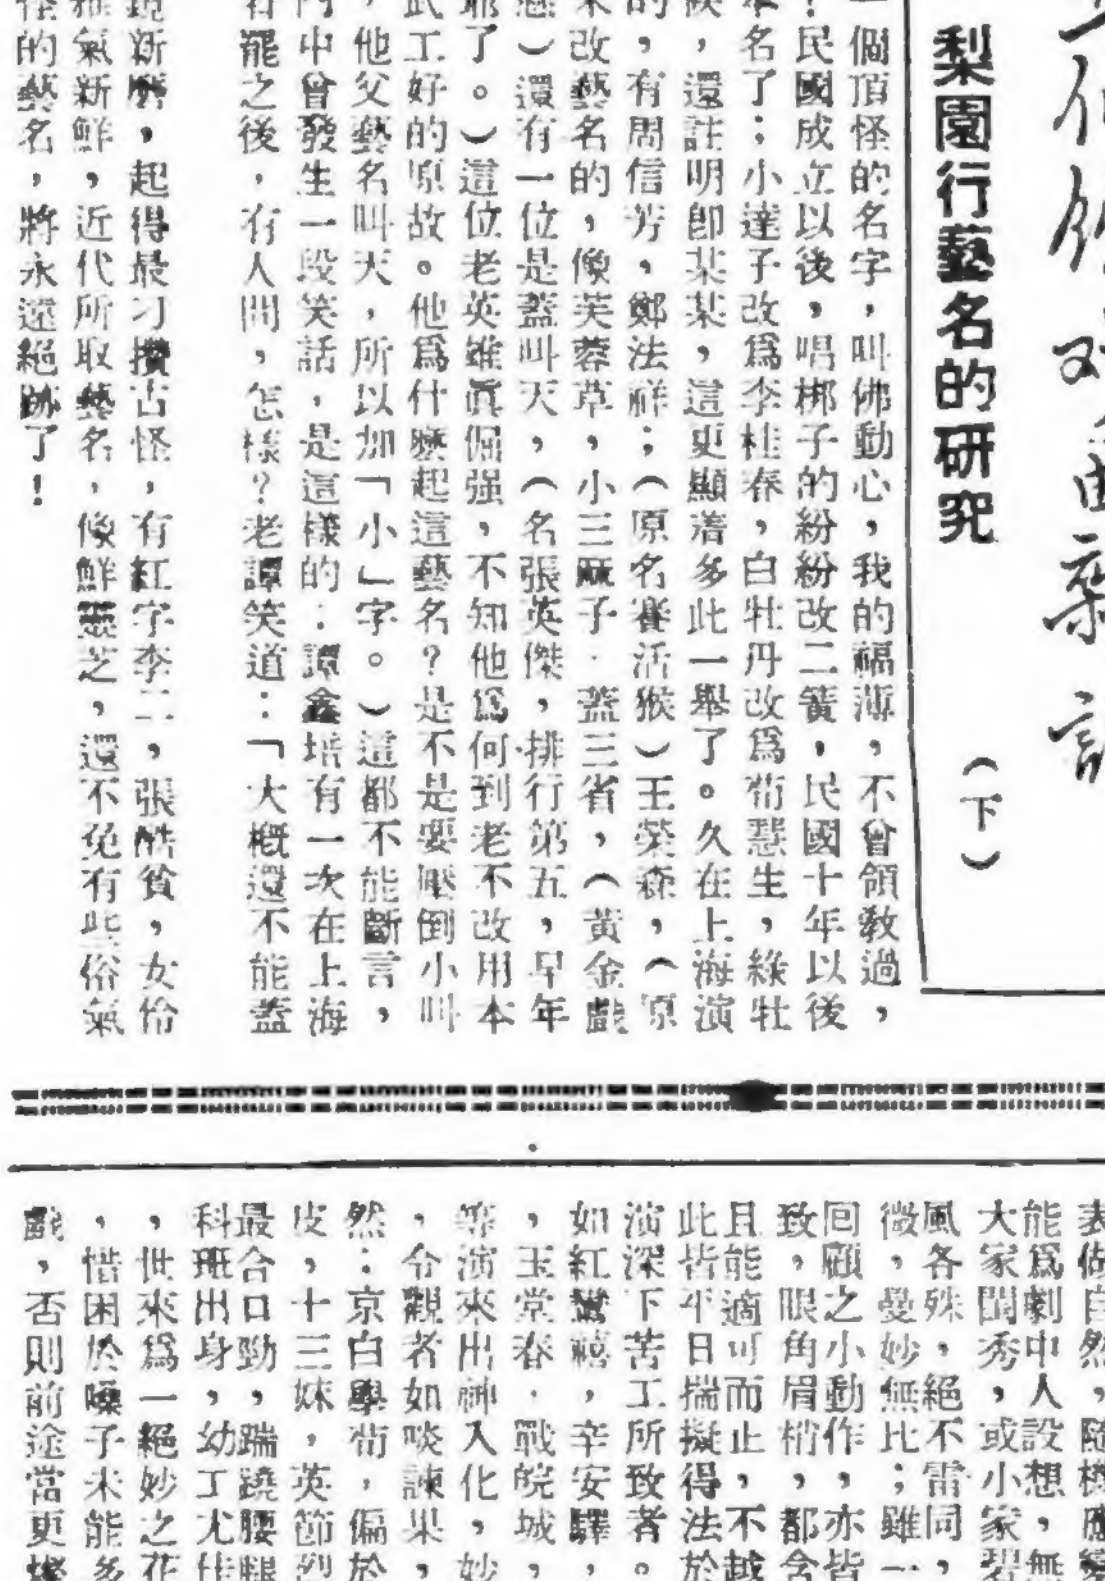 梨園行藝名的研究
（下）
一個頂怪的名字，叫佛動心，我的福薄，不曾領敎過，
？民國成立以後，唱梆子的紛紛改二簧，民國十年以後
本名了；小達子改爲李桂春，白牡丹改爲荀慧生，綠牡
，還註明卽某某，這更顯着多此一舉了。久在上海演
的，有周信芳，鄭法祥；（原名賽活猴）王榮森，（原
改藝名的，像芙蓉草，小三麻子．蓋三省，（黃金戲
）還有一位是蓋叫天，（名張英傑，排行第五，早年
耶了。）這位老英雄眞倔强，不知他爲何到老不改用本
武工好的原故。他爲什麼起這藝名？是不是要壓倒小叫
，他父藝名叫天，所以加「小」字。）這都不能斷言，
中曾發生一段笑話，是這樣的：譚鑫培有一次在上海
罷之後，有人問，怎樣？老譚笑道：「大槪還不能蓋
新磨，起得最刁攢古怪，有紅字李二，張酷貧，女伶
氣新鮮，近代所取藝名，像鮮靈芝，還不免有些俗氣
怪的藝名，將永遠絕跡了！
表做自然，隨機應變
能爲劇中人設想，無
大家閨秀，或小家碧
風各殊，絕不雷同，
微，曼妙無比；雖一
回顧之小動作，亦皆
致，眼角眉梢，都含
且能適可而止，不越
此皆平日揣擬得法於
演深下苦工所致者。
如紅鸞禧，辛安驛，
，玉堂春，戰皖城，
等演來出神入化，妙
，令觀者如啖諫果，
然：京白學荀，偏於
皮，十三妹，英節烈
最合口勁，踹蹺腰腿
科班出身，幼工尤佳
，世來爲一絕妙之花
，惜困於嗓子未能多
戲，否則前途當更燦